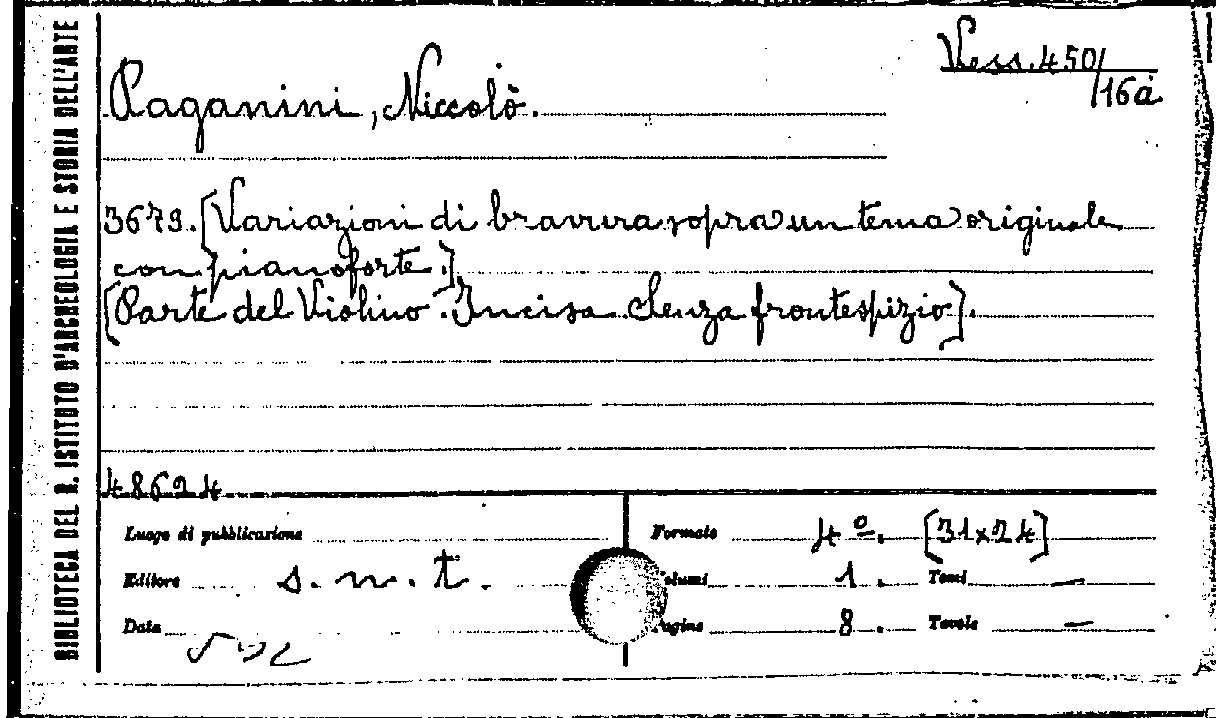 BIBLIOTECA DEL R. ISTITUTO D'ARCHEOLOGIA E STORIA DELL'ARTE
Vess. 450/16a
Paganini, Niccolò.
3679. [Variazioni di bravura sopra un tema originale
con pianoforte.]
[Parte del Violino. Incisa. Senza frontespizio].
48624
Luogo di pubblicazione
Formato 4º. [31x24]
Editore s. n. t.
Volumi 1. Tomi —
Data
Pagine 8. Tavole —